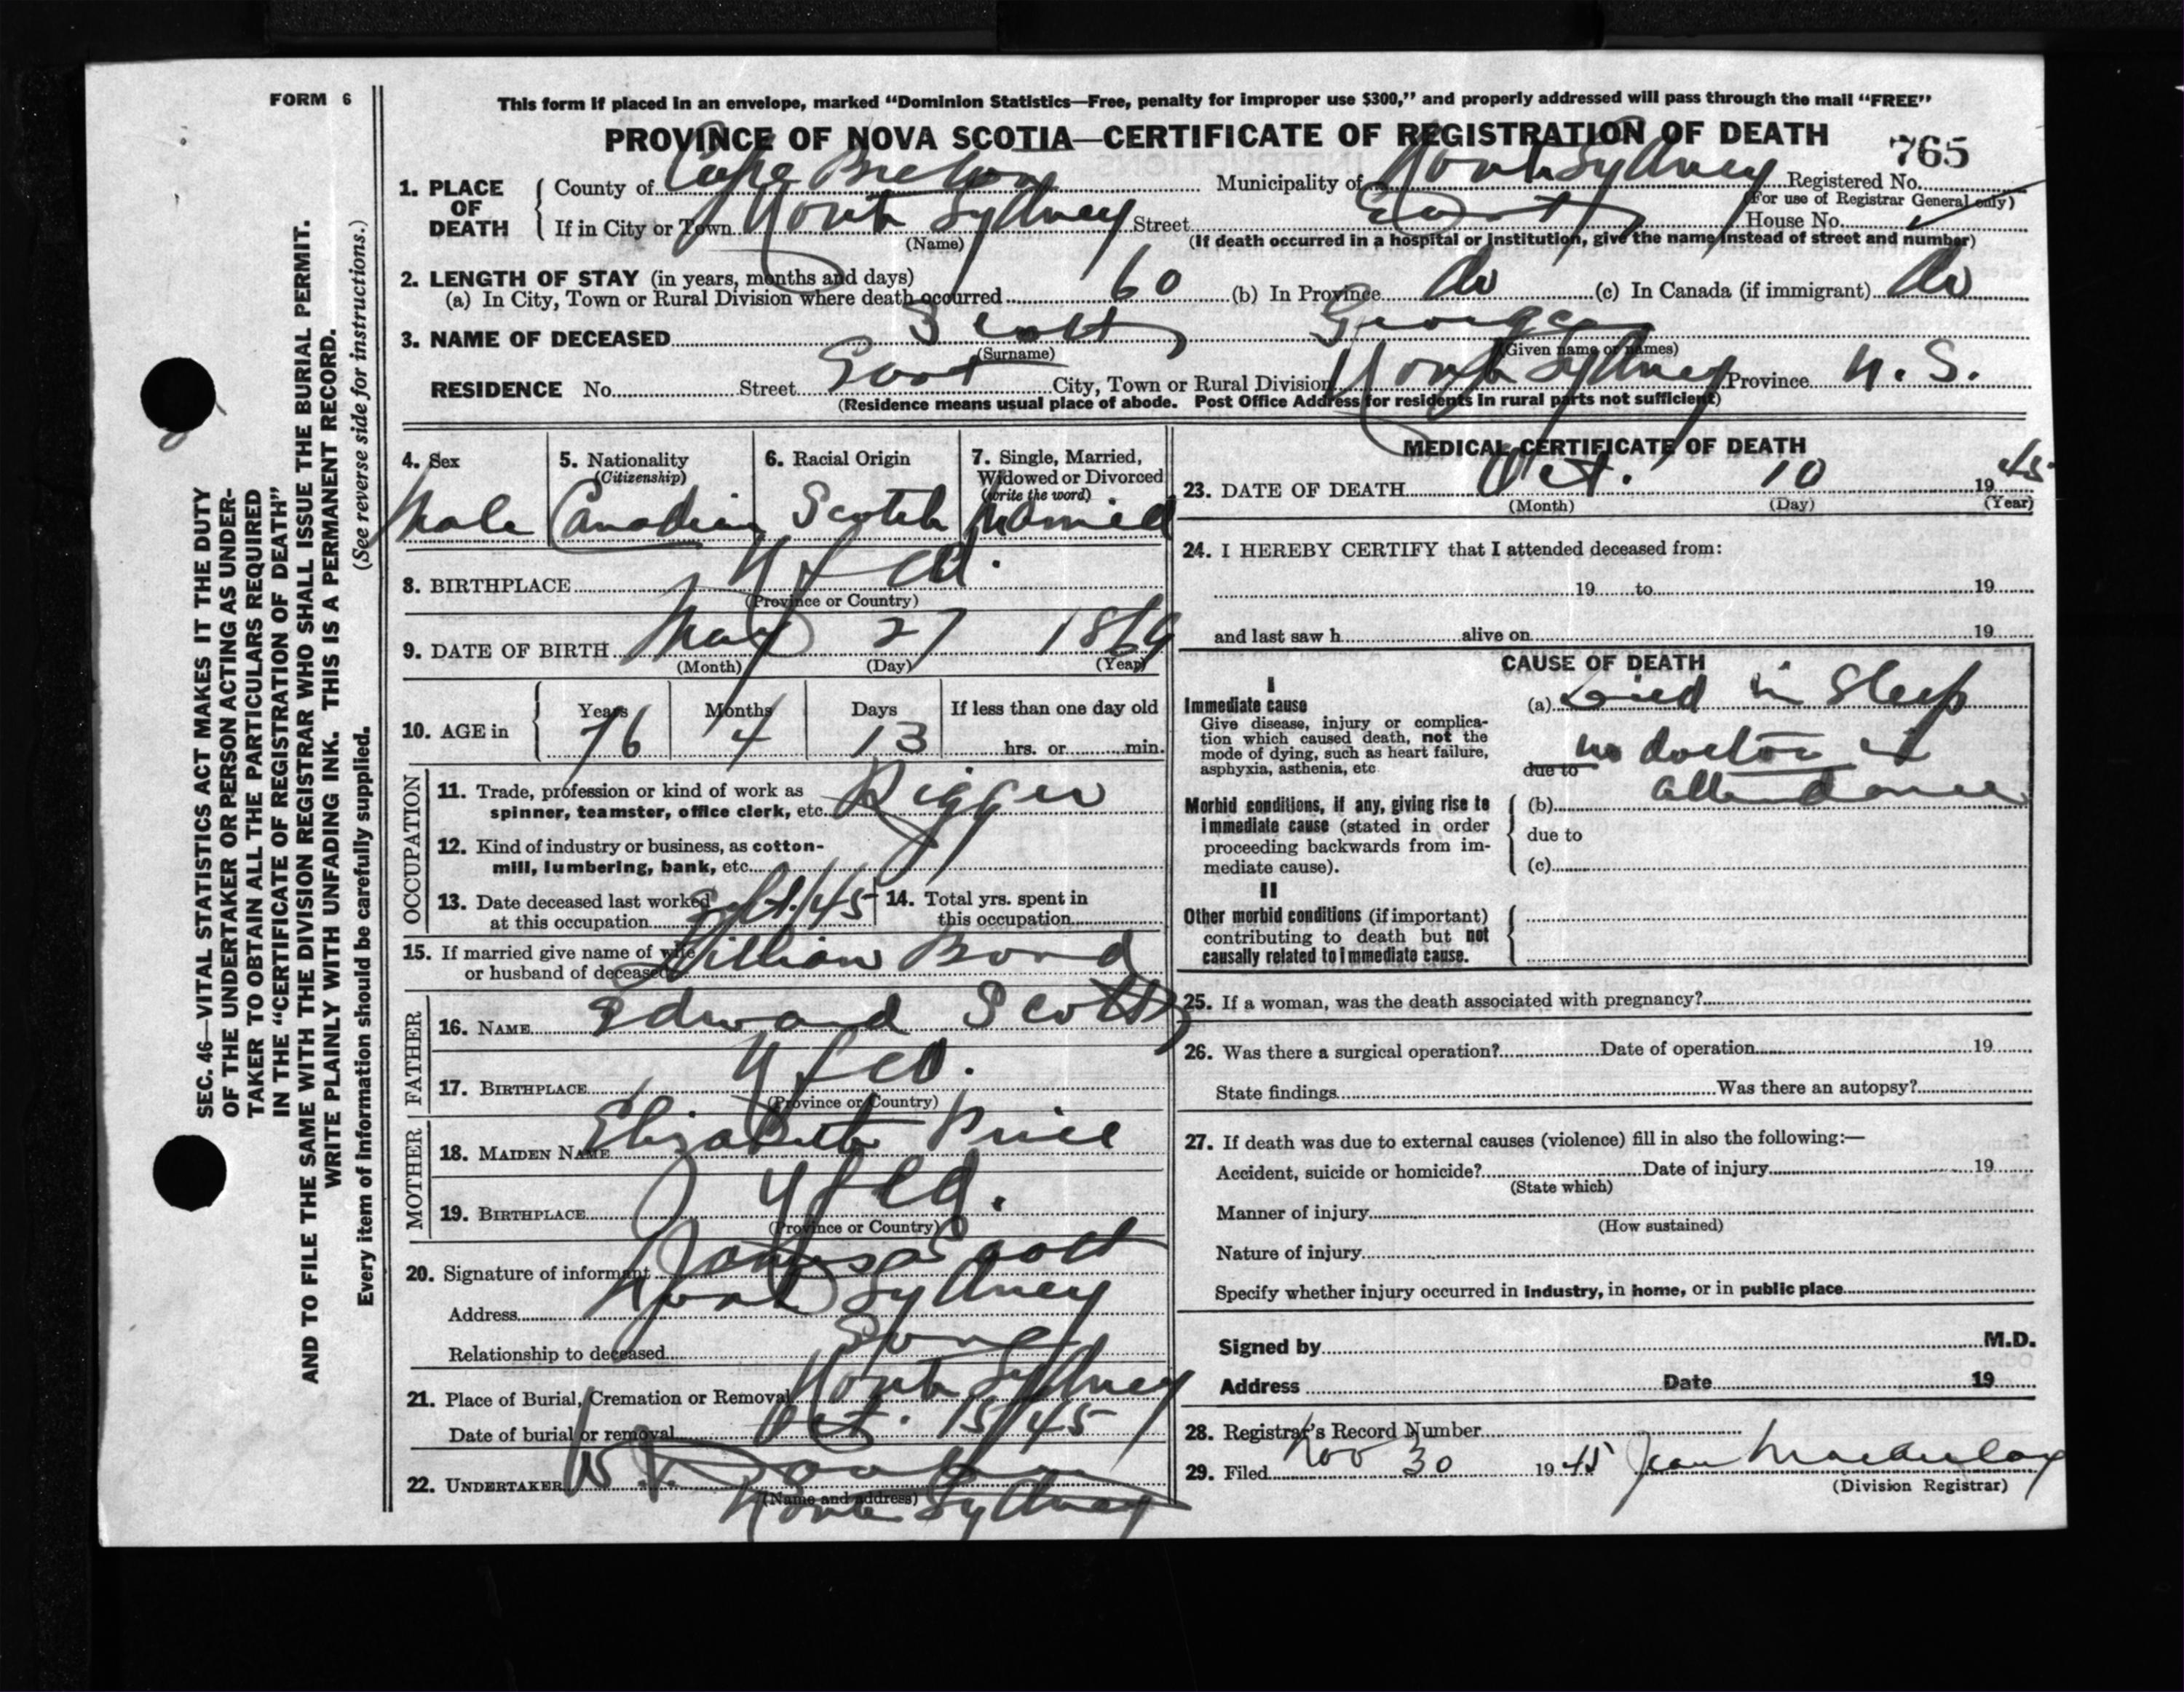 FORM 6
This form if placed in an envelope, marked “Dominion Statistics—Free, penalty for improper use $300,” and properly addressed will pass through the mail “FREE”
PROVINCE OF NOVA SCOTIA—CERTIFICATE OF REGISTRATION OF DEATH
765
1. PLACE OF DEATH County of Cape Breton Municipality of North Sydney Registered No.
(For use of Registrar General only)
If in City or Town North Sydney Street House No.
(Name) (If death occurred in a hospital or institution, give the name instead of street and number)
2. LENGTH OF STAY (in years, months and days)
(a) In City, Town or Rural Division where death occurred 60 (b) In Province do (c) In Canada (if immigrant) do
3. NAME OF DECEASED Scott George
(Surname) (Given name or names)
RESIDENCE No. Street City, Town or Rural Division North Sydney Province N. S.
(Residence means usual place of abode. Post Office Address for residents in rural parts not sufficient)
4. Sex
Male
5. Nationality
(Citizenship)
Canadian
6. Racial Origin
Scotch
7. Single, Married,
Widowed or Divorced
(write the word)
Married
8. BIRTHPLACE Nfld.
(Province or Country)
9. DATE OF BIRTH May 27 1869
(Month) (Day) (Year)
10. AGE in Years Months Days If less than one day old
76 4 13 hrs. or min.
OCCUPATION
11. Trade, profession or kind of work as
spinner, teamster, office clerk, etc. Rigger
12. Kind of industry or business, as cotton-
mill, lumbering, bank, etc.
13. Date deceased last worked
at this occupation Sept./45
14. Total yrs. spent in
this occupation
15. If married give name of wife
or husband of deceased Lillian Bond
FATHER
16. NAME Edward Scott
17. BIRTHPLACE Nfld.
(Province or Country)
MOTHER
18. MAIDEN NAME Elizabeth Price
19. BIRTHPLACE Nfld.
(Province or Country)
20. Signature of informant James Scott
Address North Sydney
Relationship to deceased Son
21. Place of Burial, Cremation or Removal North Sydney
Date of burial or removal Oct. 15/45
22. UNDERTAKER W
(Name and address)
North Sydney
MEDICAL CERTIFICATE OF DEATH
23. DATE OF DEATH Oct. 10 1945
(Month) (Day) (Year)
24. I HEREBY CERTIFY that I attended deceased from:
19 to 19
and last saw h alive on 19
CAUSE OF DEATH
I
Immediate cause
Give disease, injury or complica-
tion which caused death, not the
mode of dying, such as heart failure,
asphyxia, asthenia, etc
(a) Died in Sleep
due to no doctor in
(b) attendance
Morbid conditions, if any, giving rise to
immediate cause (stated in order
proceeding backwards from im-
mediate cause).
due to
(c)
II
Other morbid conditions (if important)
contributing to death but not
causally related to immediate cause.
25. If a woman, was the death associated with pregnancy?
26. Was there a surgical operation? Date of operation 19
State findings Was there an autopsy?
27. If death was due to external causes (violence) fill in also the following:—
Accident, suicide or homicide? Date of injury 19
(State which)
Manner of injury
(How sustained)
Nature of injury
Specify whether injury occurred in industry, in home, or in public place
Signed by M.D.
Address Date 19
28. Registrar's Record Number
29. Filed Nov 30 1945 Jean MacAulay
(Division Registrar)
SEC. 46—VITAL STATISTICS ACT MAKES IT THE DUTY
OF THE UNDERTAKER OR PERSON ACTING AS UNDER-
TAKER TO OBTAIN ALL THE PARTICULARS REQUIRED
IN THE “CERTIFICATE OF REGISTRATION OF DEATH”
AND TO FILE THE SAME WITH THE DIVISION REGISTRAR WHO SHALL ISSUE THE BURIAL PERMIT.
WRITE PLAINLY WITH UNFADING INK. THIS IS A PERMANENT RECORD.
Every item of information should be carefully supplied. (See reverse side for instructions.)